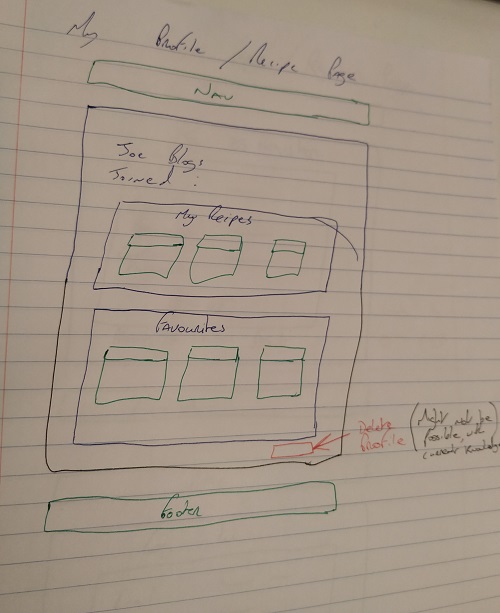 My Profile / Recipe Page
Nav
Joe Blogs
Joined :
My Recipes
Favourites
Delete
Profile
(Might not be
possible with
current knowledge)
Footer